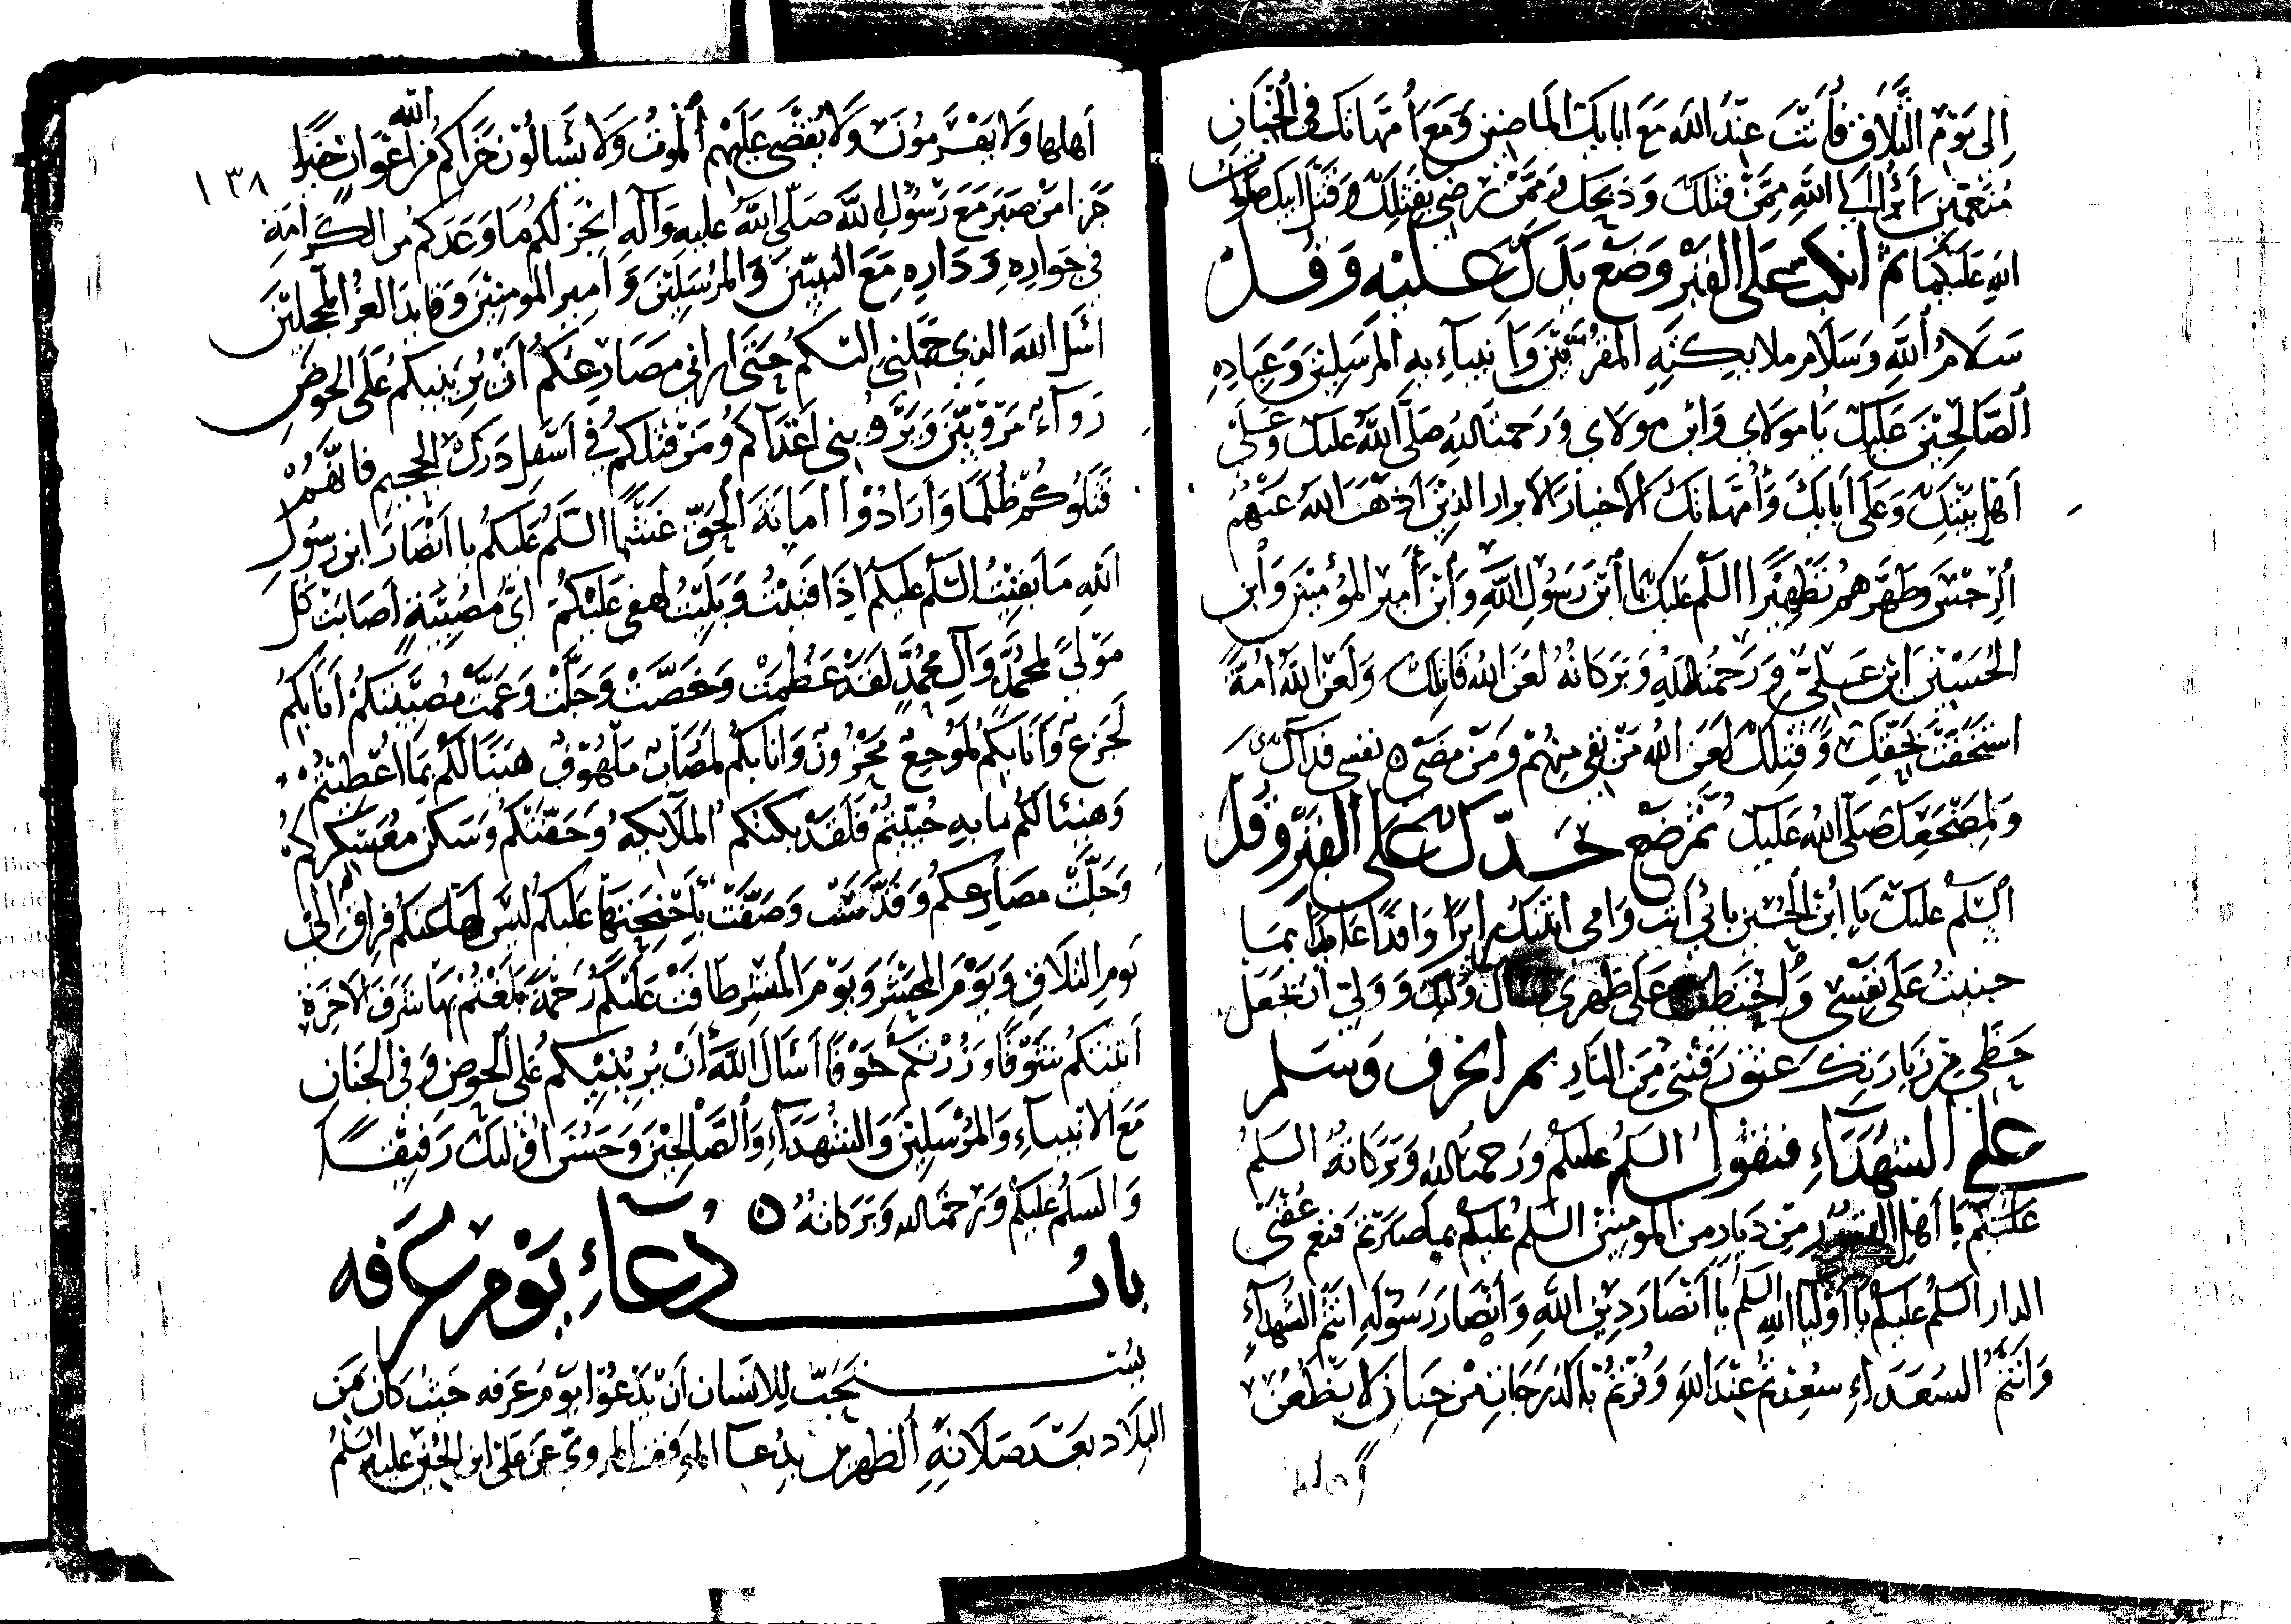 الى يوم التلاق فأنت عند الله مع ابايك الماضين ومع أمهاتك في الجنان
منعمين أبرأ الى الله ممن قتلك وذبحك وممن رضي بقتلك وقتل ابيك صلوات
الله عليكما ثم انكب على القبر وضع يدك عليه وقل
سلام الله وسلام ملايكته المقربين وأنبيآءه المرسلين وعباده
الصالحين عليك يا مولاي وابن مولاي ورحمة الله صلى الله عليك وعلى
أهل بيتك وعلى أبايك وأمهاتك الاخيار الابرار الذين أذهب الله عنهم
الرجس وطهرهم تطهيرا السلم عليك يا ابن رسول الله وأبن أمير المؤمنين وأبن
الحسين ابن علي ورحمة الله وبركاته لعن الله قاتلك ولعن الله امة
استخفت بحقك وقتلك لعن الله من بقي منهم ومن مضى نفسي فدآك
ولمضجعك صلى الله عليك ثم ضع خدك على القبر وقل
السلم عليك يا ابن الحسين بابي أنت وامي اتيتك زايرا وافدا عايذا مما
جنيت على نفسي واحتطبت على ظهري أسأل وليك ووليي أن يجعل
حظي من زيارتك عتق رقبتي من النار ثم انحرف وسلم
على الشهداء فتقول السلم عليكم ورحمة الله وبركاته السلم
عليكم يا أهل القبور من ديار من المومنين السلم عليكم بما صبرتم فنعم عقبى
الدار السلم عليكم يا أوليا الله السلم يا أنصار دين الله وأنصار رسوله انتم الشهدآء
وأنتم السعداء سعدتم عند الله وفزتم بالدرجات من جنان لا يظعن
أهلها
أهلها ولا يهرمون ولا يقضى عليهم الموت ولا يسالون جزاكم الله من أعوان خيرا
١٣٨
جزا من صبر مع رسول الله صلى الله عليه وآله انجز لكم ما وعدكم من الكرامة
في جواره وداره مع النبيين والمرسلين وأمير المومنين وقايد الغر المحجلين
اسل الله الذي حملني اليكم حتى اراني مصارعكم أن يرينيكم على الحوض
رواء مرويين ويريني أعدآكم ومن قتلكم في أسفل درك الجحيم فانهم
قتلوكم ظلما وأرادوا أمانة الحق عنتها السلم عليكم يا أنصار ابن رسول
الله ما بقيت السلم عليكم اذا فنيت وبليت لهفي عليكم اي مصيبة أصابت كل
مولى لمحمد وآل محمد لقد عظمت وخصت وجلت وعمت مصيبتكم أنا بكم
لجزع وأنا بكم لموجع محزون وأنا بكم لمصاب ملهوف هنيا لكم بما اعطيتم
وهنيئا لكم ما به حييتم فلقد بكتكم الملآيكه وحفتكم وسكن معسكركم
وحلت مصارعكم وقدست وصفت بأجنحتها عليكم ليس لها عنكم فراق الى
يوم التلاق ويوم المحشر ويوم المنشر طافت عليكم رحمة بلغتم بها شرف الاخرة
أتيتكم شوقا وزرتكم خوفا أسأل الله أن يرينيكم على الحوض وفي الجنان
مع الانبيآء والمرسلين والشهدآء والصالحين وحسن اوليك رفيقا
والسلم عليكم ورحمة الله وبركاته
باب دعآء يوم عرفه
يستحب للانسان أن يدعوا يوم عرفه حيث كان من
البلاد بعد صلاته الظهرين بدعا الموقف المروي عن علي ابن الحسين عليه السلم